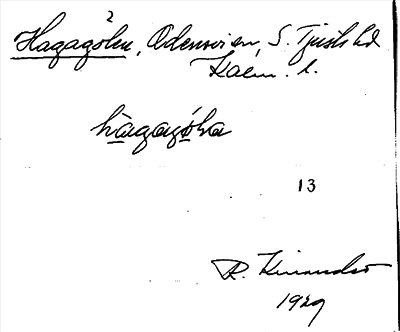 2
Hagagölen, Odensvi sn, S. Tjusts hd
Kalm. l.
hagagöla
13
R. Kinander
1929